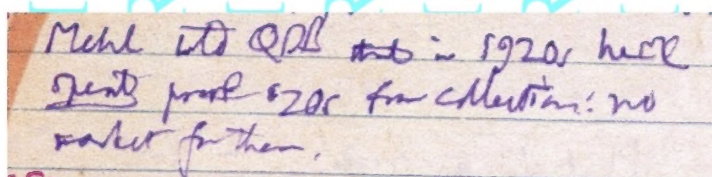 Mehl told QDB that in 1920s he'd
spent proof $20s from collection: no
market for them.